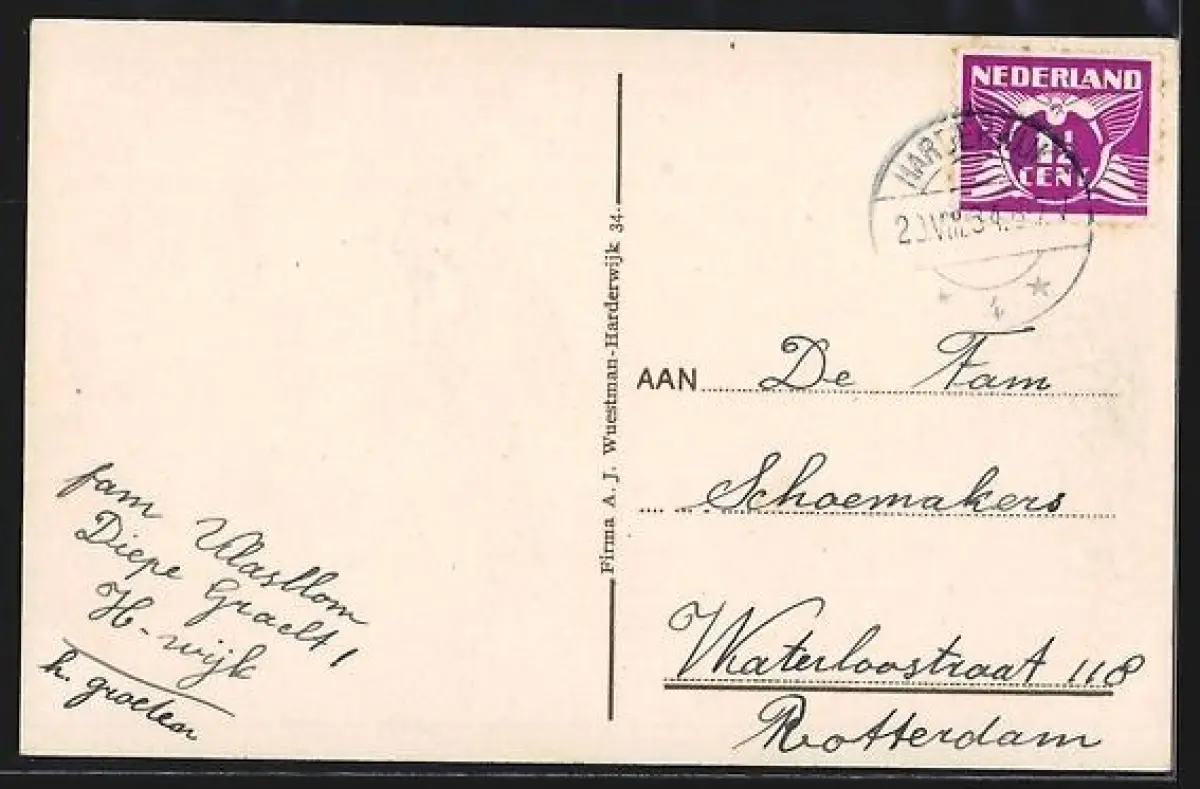 NEDERLAND
1½
CENT
HARDERWIJK
20.VIII.34.
1
Firma A. J. Wuestman-Harderwijk 34.
AAN De Fam
Schoemakers
Waterloostraat 118
Rotterdam
fam Vlasblom
Diepe Gracht 1
H-wijk
h. groeten